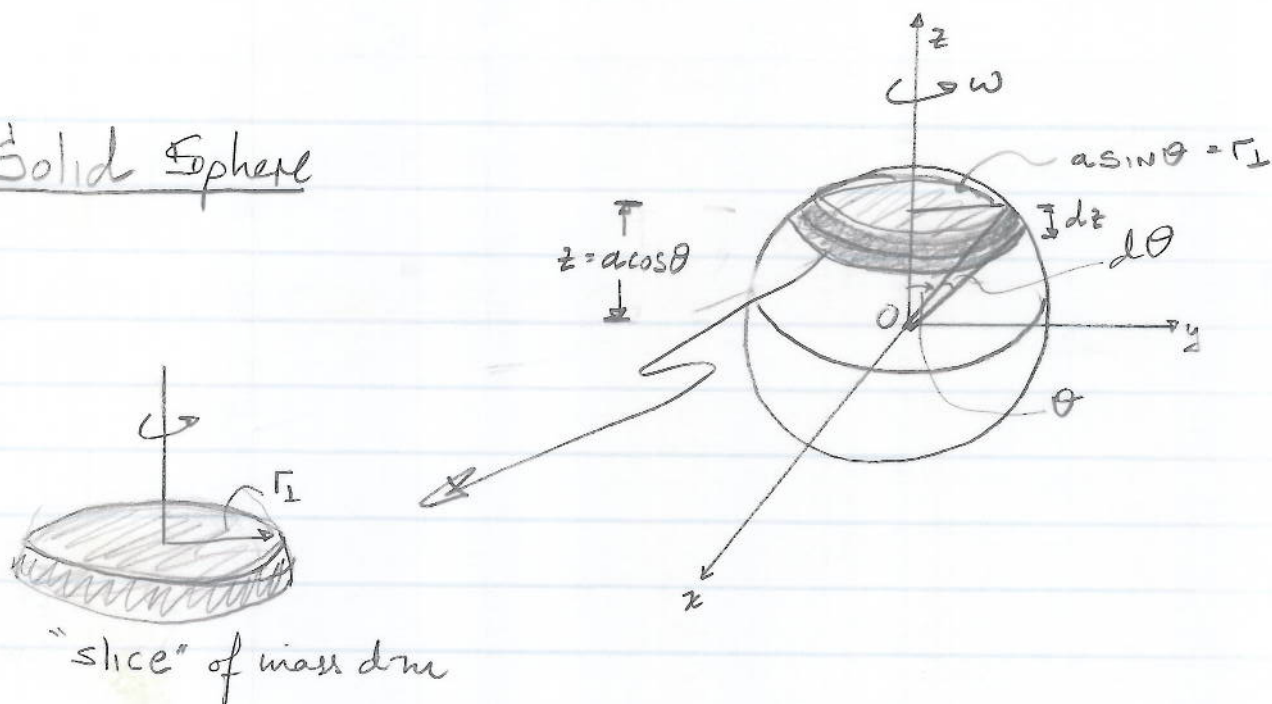 Solid Sphere
z
ω
a SIN θ = r⊥
dz
z = a cos θ
dθ
O
y
θ
r⊥
x
"slice" of mass dm